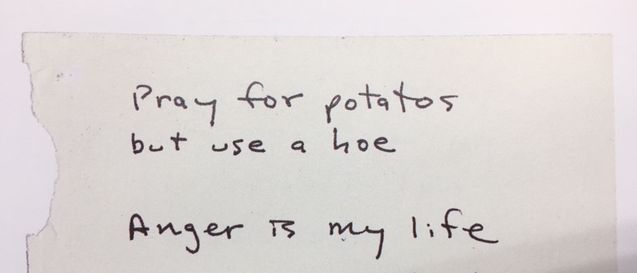 Pray for potatos
but use a hoe
Anger is my life